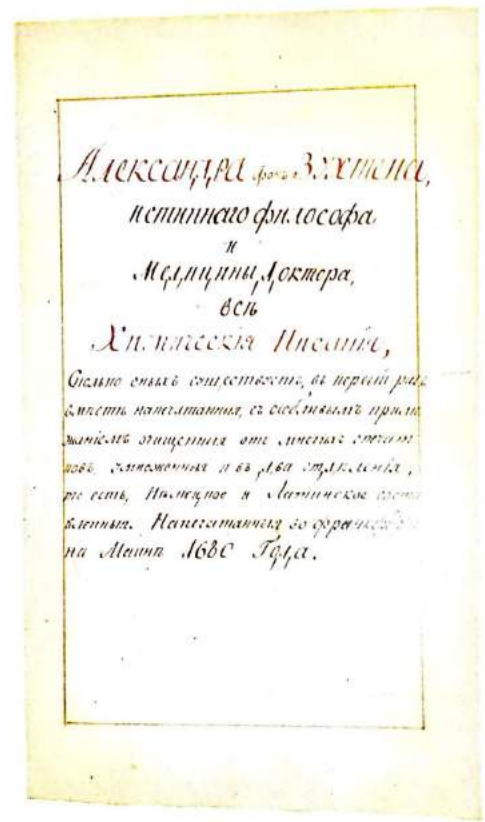 Александра фонъ Зухтена,
истиннаго философа
и
Медицины Доктора,
всѣ
Химическія Писанія,
Сколько оныхъ существуетъ, въ первый разъ
вмѣстѣ напечатанныя, съ особливымъ прилѣ
жаніемъ очищенныя отъ многихъ опечат
ковъ, умноженныя и въ два отдѣленія,
то есть, Нѣмецкое и Латинское соста
вленныя. Напечатанныя во Франкфуртѣ
на Маинѣ 1680 Года.